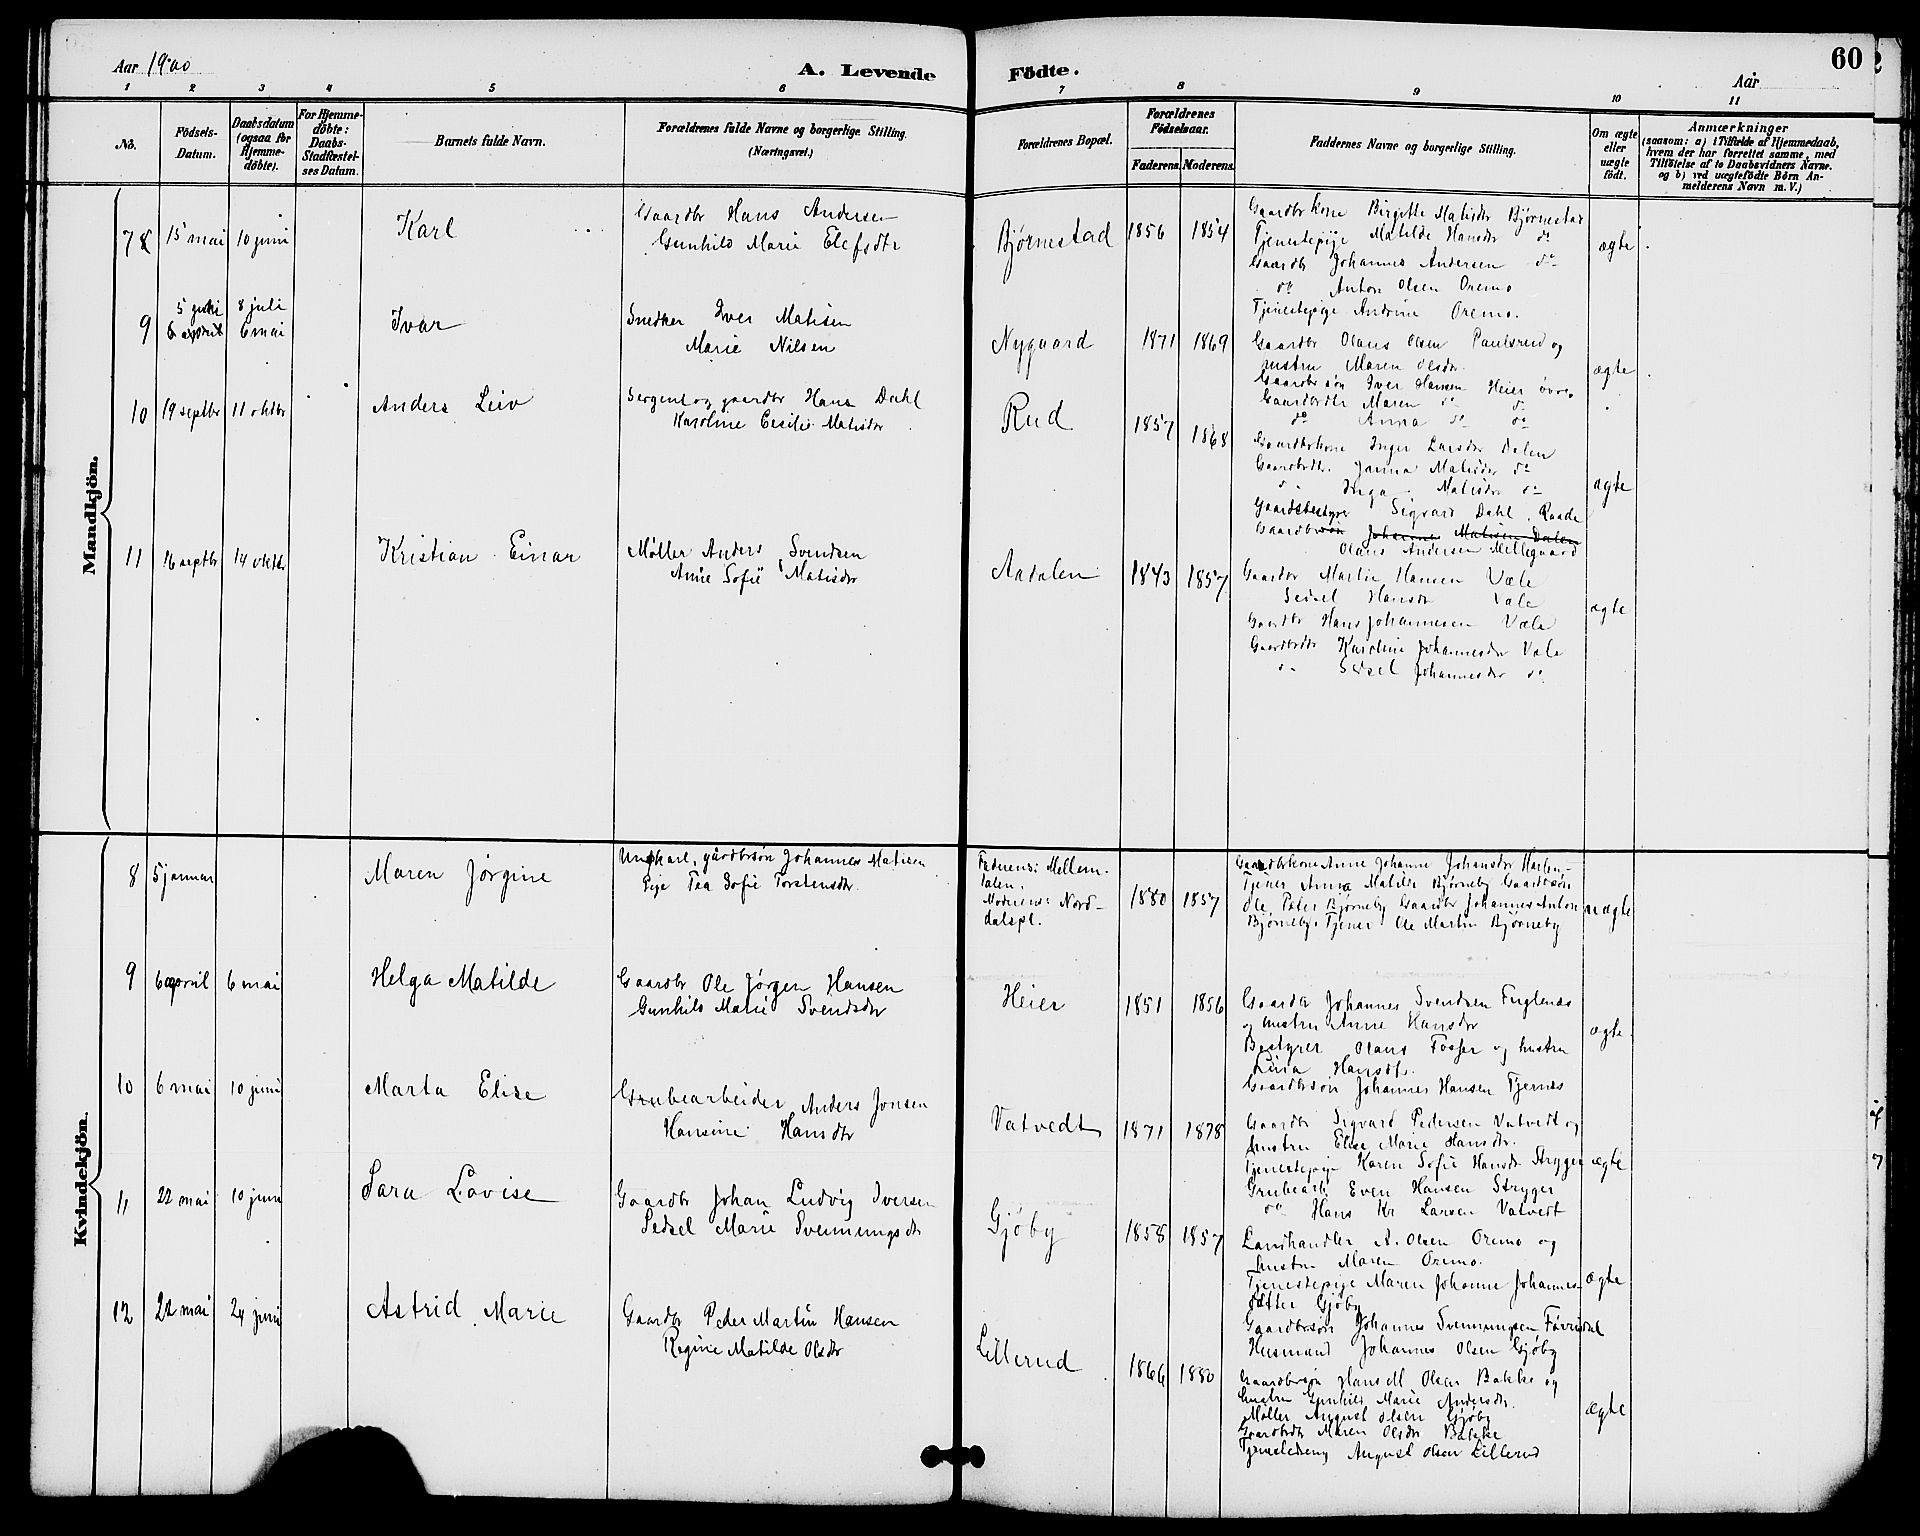 Aar 1900
A. Levende Fødte.
Aar
60
1 2 3 4 5 6 7 8 9 10 11
No.
Fødsels-Datum.
Daabsdatum (ogsaa for Hjemmedøbte).
For Hjemmedøbte: Daabs-Stadfæstelses Datum.
Barnets fulde Navn.
Forældrenes fulde Navne og borgerlige Stilling. (Næringsvei.)
Forældrenes Bopæl.
Forældrenes Fødselsaar.
Faderens. Moderens.
Faddernes Navne og borgerlige Stilling.
Om ægte eller uægte født.
Anmærkninger
(saasom: a) i Tilfælde af Hjemmedaab, hvem der har forrettet samme, med Tilføielse af to Daabsvidners Navne. og b) ved uægtefødte Børn Anmelderens Navn m. V.)
Mandkjön.
8 15 mai 10 juni Karl
Gaardbr Hans Andersen
Gunhild Marie Elefsdtr
Bjørnestad 1856 1854
Gaardbrkone Birgitte Matisdr Bjørnestad
Tjenestepige Matilde Hansdr do
Gaardbr Johannes Andersen do
do Anton Olsen Oremo
Tjenestepige Andrine Oremo.
ægte
5 juni 8 juli
9 6 april 6 mai Ivar
Snedker Iver Matisen
Marie Nilsen
Nygaard 1871 1869
Gaardbr Olaus Olsen Paulsrud og
hustru Maren Olsdr.
Gaardbrsøn Iver Hansen Heier øvre
Gaardbrdtr Maren do do
do Anna do do
ægte
10 19 septbr 11 oktbr Anders Leiv
Sergent og gaardbr Hans Dahl
Karoline Cecilie Matisdr
Rud 1857 1868
Gaardbrkone Inger Larsdr Dalen
Gaardbrdtr. Janna Matisdr do
do Inga Matisdr do
Gaardsbestyrer Sigvard Dahl, Raade
Gaardbrsøn Johannes Matisen Dalen
Olaus Andersen Mellegaard
ægte
11 16 septbr 14 oktbr Kristian Einar
Møller Anders Svendsen
Anne Sofie Matisdr
Aadalen 1843 1857
Gaardbr Martin Hansen Væle
Sedsel Hansdr Væle
Gaardbr Hans Johannesen Væle
Gaardbrdtr Karoline Johannesdr Væle
do Sedsel Johannesdr do
ægte
Kvindekjön.
8 5 januar Maren Jørgine
Ungkarl, gårdbrsøn Johannes Matisen
Pige Tea Sofie Torstensdr.
Faderens: Mellem-
dalen.
Moderens: Nord-
dalspl.
1880 1857
Gaardbrkone Anne Johanne Johansdr Haslen-
Tjener Anna Matilde Bjørneby Gaardbrsøn
Ole Peter Bjørneby Gaardbr Johannes Anton
Bjørneby, Tjener Ole Martin Bjørneby
uægte
9 6 april 6 mai Helga Matilde
Gaardbr Ole Jørgen Hansen
Gunhild Marie Svendsdr
Heier 1851 1856
Gaardbr Johannes Svendsen Fuglenes
og hustru Anne Hansdr
Bestyrer Olaus Fosser og hustru
Lina Hansdt.
Gaardbrsøn Johannes Hansen Tjernes
ægte
10 6 mai 10 juni Marta Elise
Grubearbeider Anders Jonsen
Hansine Hansdtr
Vatvedt 1871 1878
Gaardbr Sigvard Pedersen Vatvedt og
hustru Elise Marie Hansdr.
Tjenestepige Karen Sofie Hansdr Stryger
Grubearb. Even Hansen Stryger
do Hans Kr Larsen Vatvedt
ægte
11 22 mai 10 juni Sara Lovise
Gaardbr Johan Ludvig Iversen
Sedsel Marie Svenningsdr
Gjøby 1858 1857
Landhandler A. Olsen Oremo og
hustru Maren Oremo.
Tjenestepige Maren Johanne Johannes-
datter Gjøby
Gaardbrsøn Johannes Svenningsen
Husmand Johannes Olsen Gjøby
ægte
12 22 mai 24 juni Astrid Marie
Gaardbr Peder Martin Hansen
Regine Matilde Olsdtr
Lillerud 1866 1880
Gaardbrsøn Hans M Olsen Bakke og
hustru Gunhild Marie Andersdr.
Møller August Olsen Gjøby
Gaardbrdtr Maren Olsdr Bakke
Tjenestedreng August Olsen Lillerud
ægte